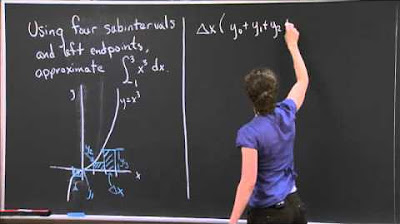 Using four subintervals
and left endpoints,
approximate ∫₋₁³ x³ dx.
y
y=x³
y₂
y₃
x
y₁
Δx
Δx ( y₀ + y₁ + y₂ +